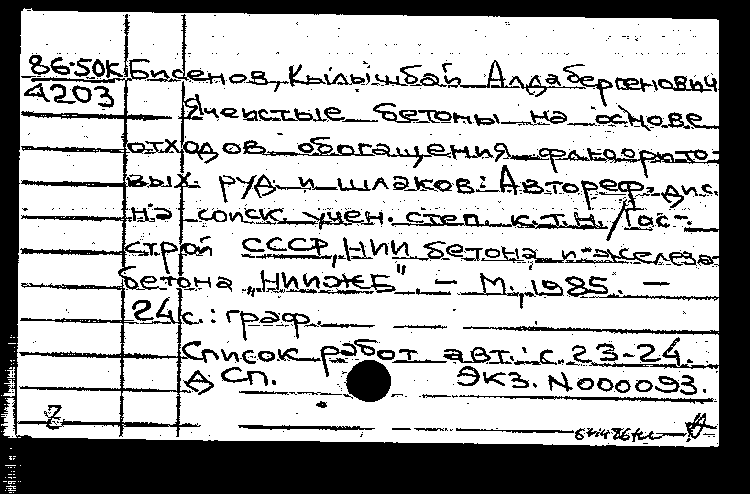 86-50К Бисенов, Кылышбай Алдабергенович
4203 Ячеистые бетоны на основе
отходов обогащения флюорито-
вых руд и шлаков: Автореф. дис.
на соиск. учен. степ. к.т.н. / Гос-
строй СССР, НИИ бетона и железо-
бетона „НИИЖБ". – М., 1985. –
24 с.: граф.
Список работ авт.: с. 23-24.
ДСП. Экз. N000093.